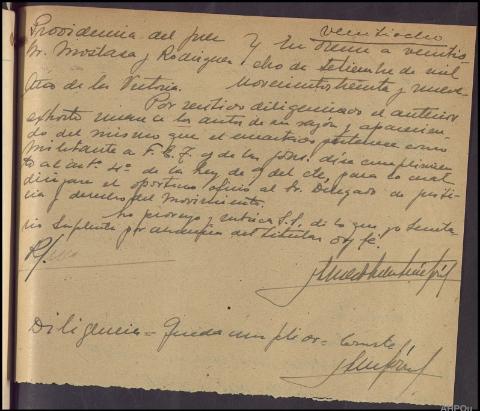 ventiocho
Providencia del Juez
Sr. Mostaza y Rodriguez
Y En Orense a ventio
cho de Setiembre de mil
Novecientos treinta y nueve
Año de la Victoria.
Por recibido diligenciado el anterior
exhorto unase a los autos de su razón y aparecien
do del mismo que el encartado pertenece como
militante a F.E.T. y de las Jons, dése cumplimien
to al artº 4º de la ley de 9 del cte, para lo cual
dirijase el oportuno oficio al Sr. Delegado de justi
cia y derecho del Movimiento.
Lo proveyo y rubrica S.S. de lo que, yo Secreta
rio Suplente por ausencia del titular doy fé.
R/
Diligencia = Queda cumplido = Conste/
AHPOu